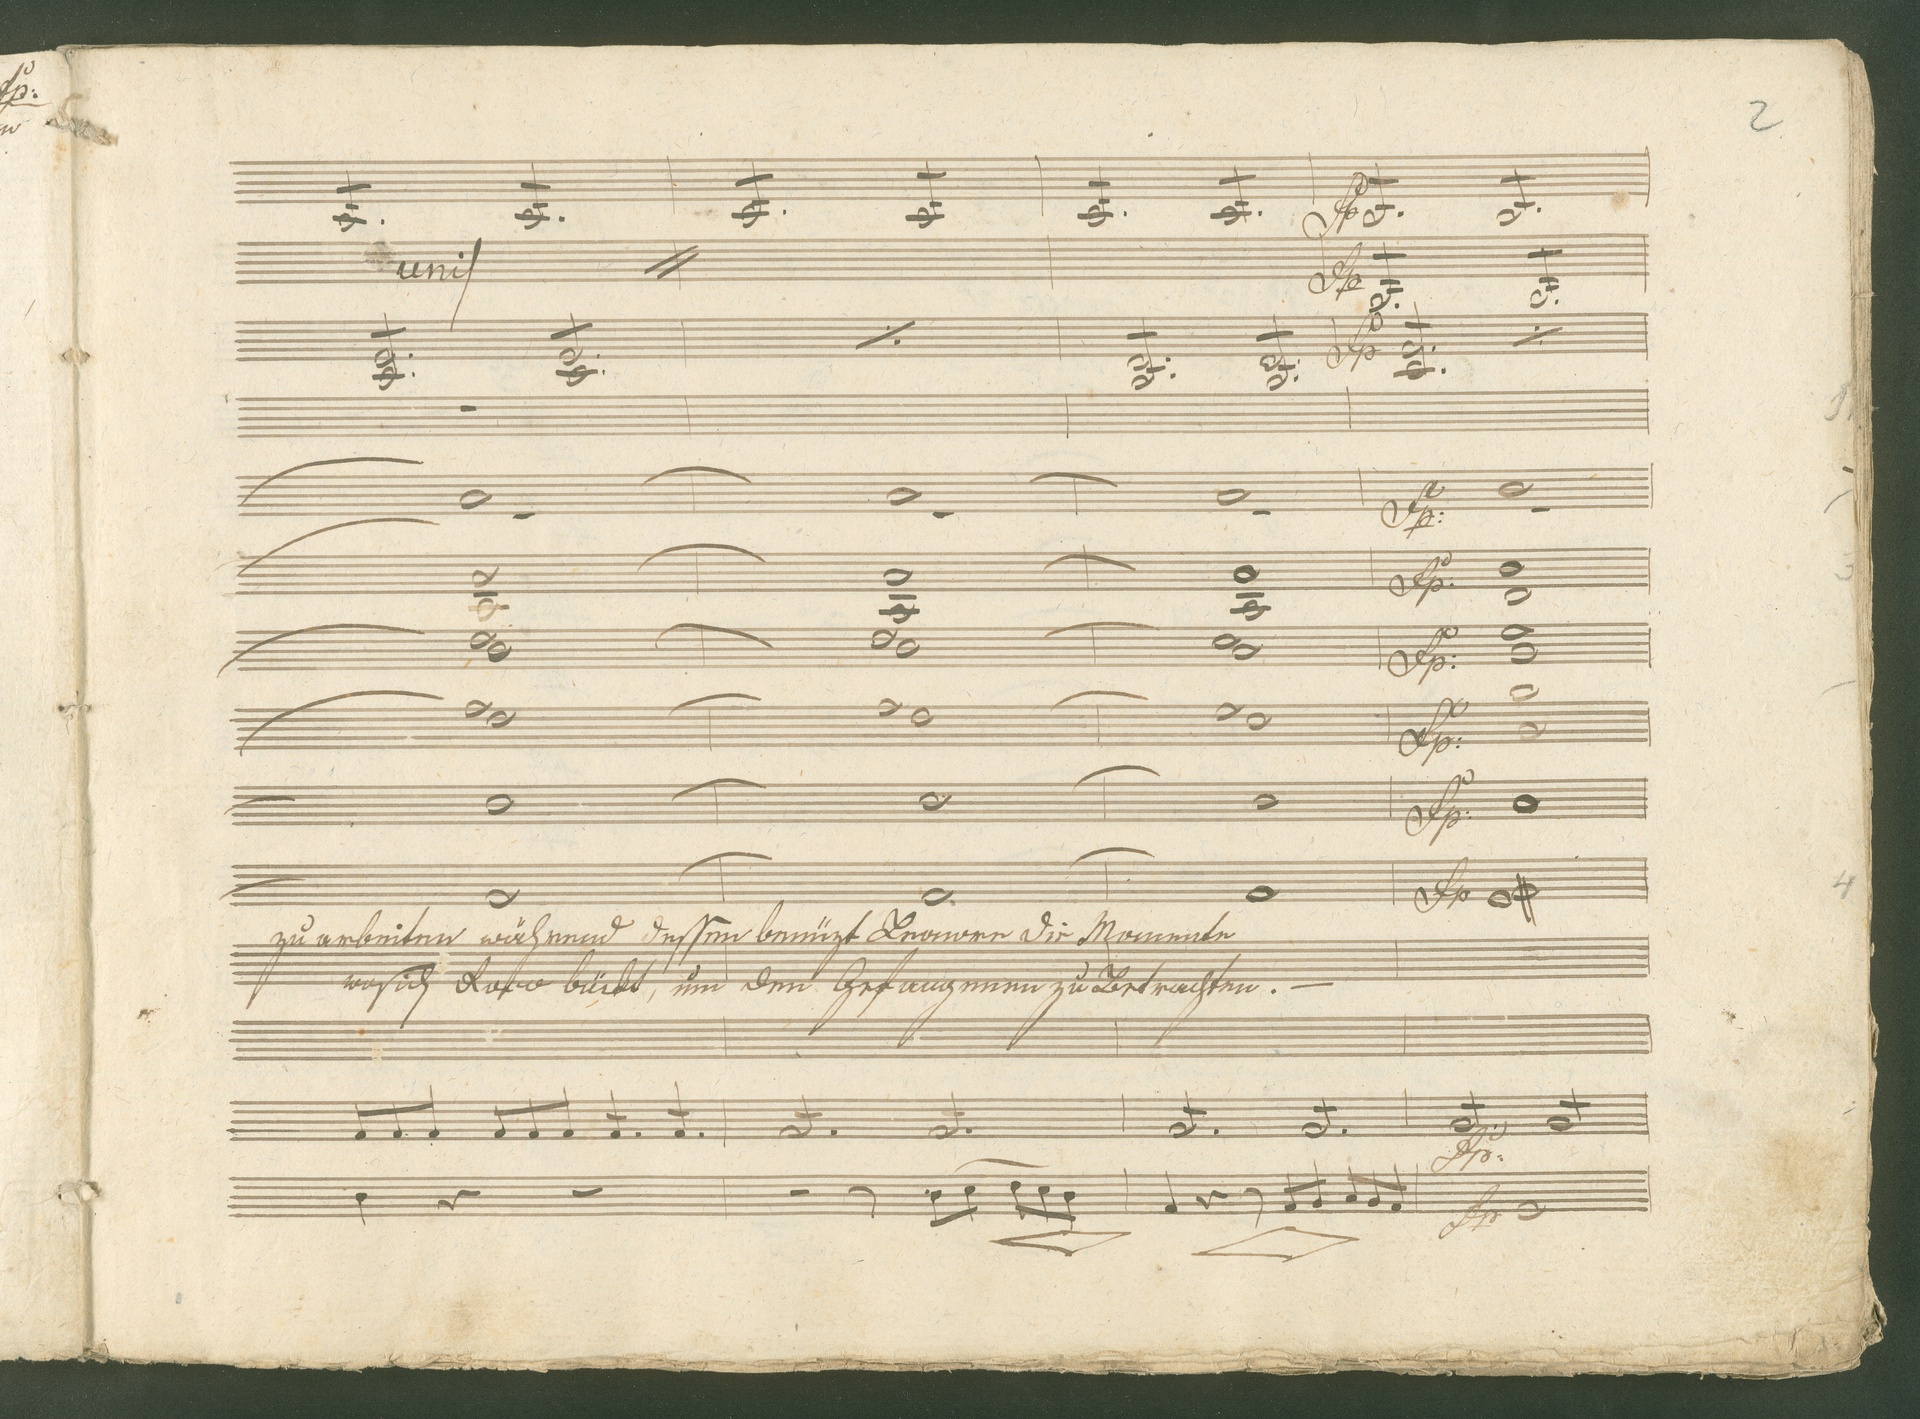 2
fp
unis
fp
fp
fp:
fp:
fp:
fp:
fp:
fp
zu arbeiten während dessen benüzt Leonore die Momente
wo sich Roco bückt, um den Gefangenen zu Betrachten. —
fp:
fp
4